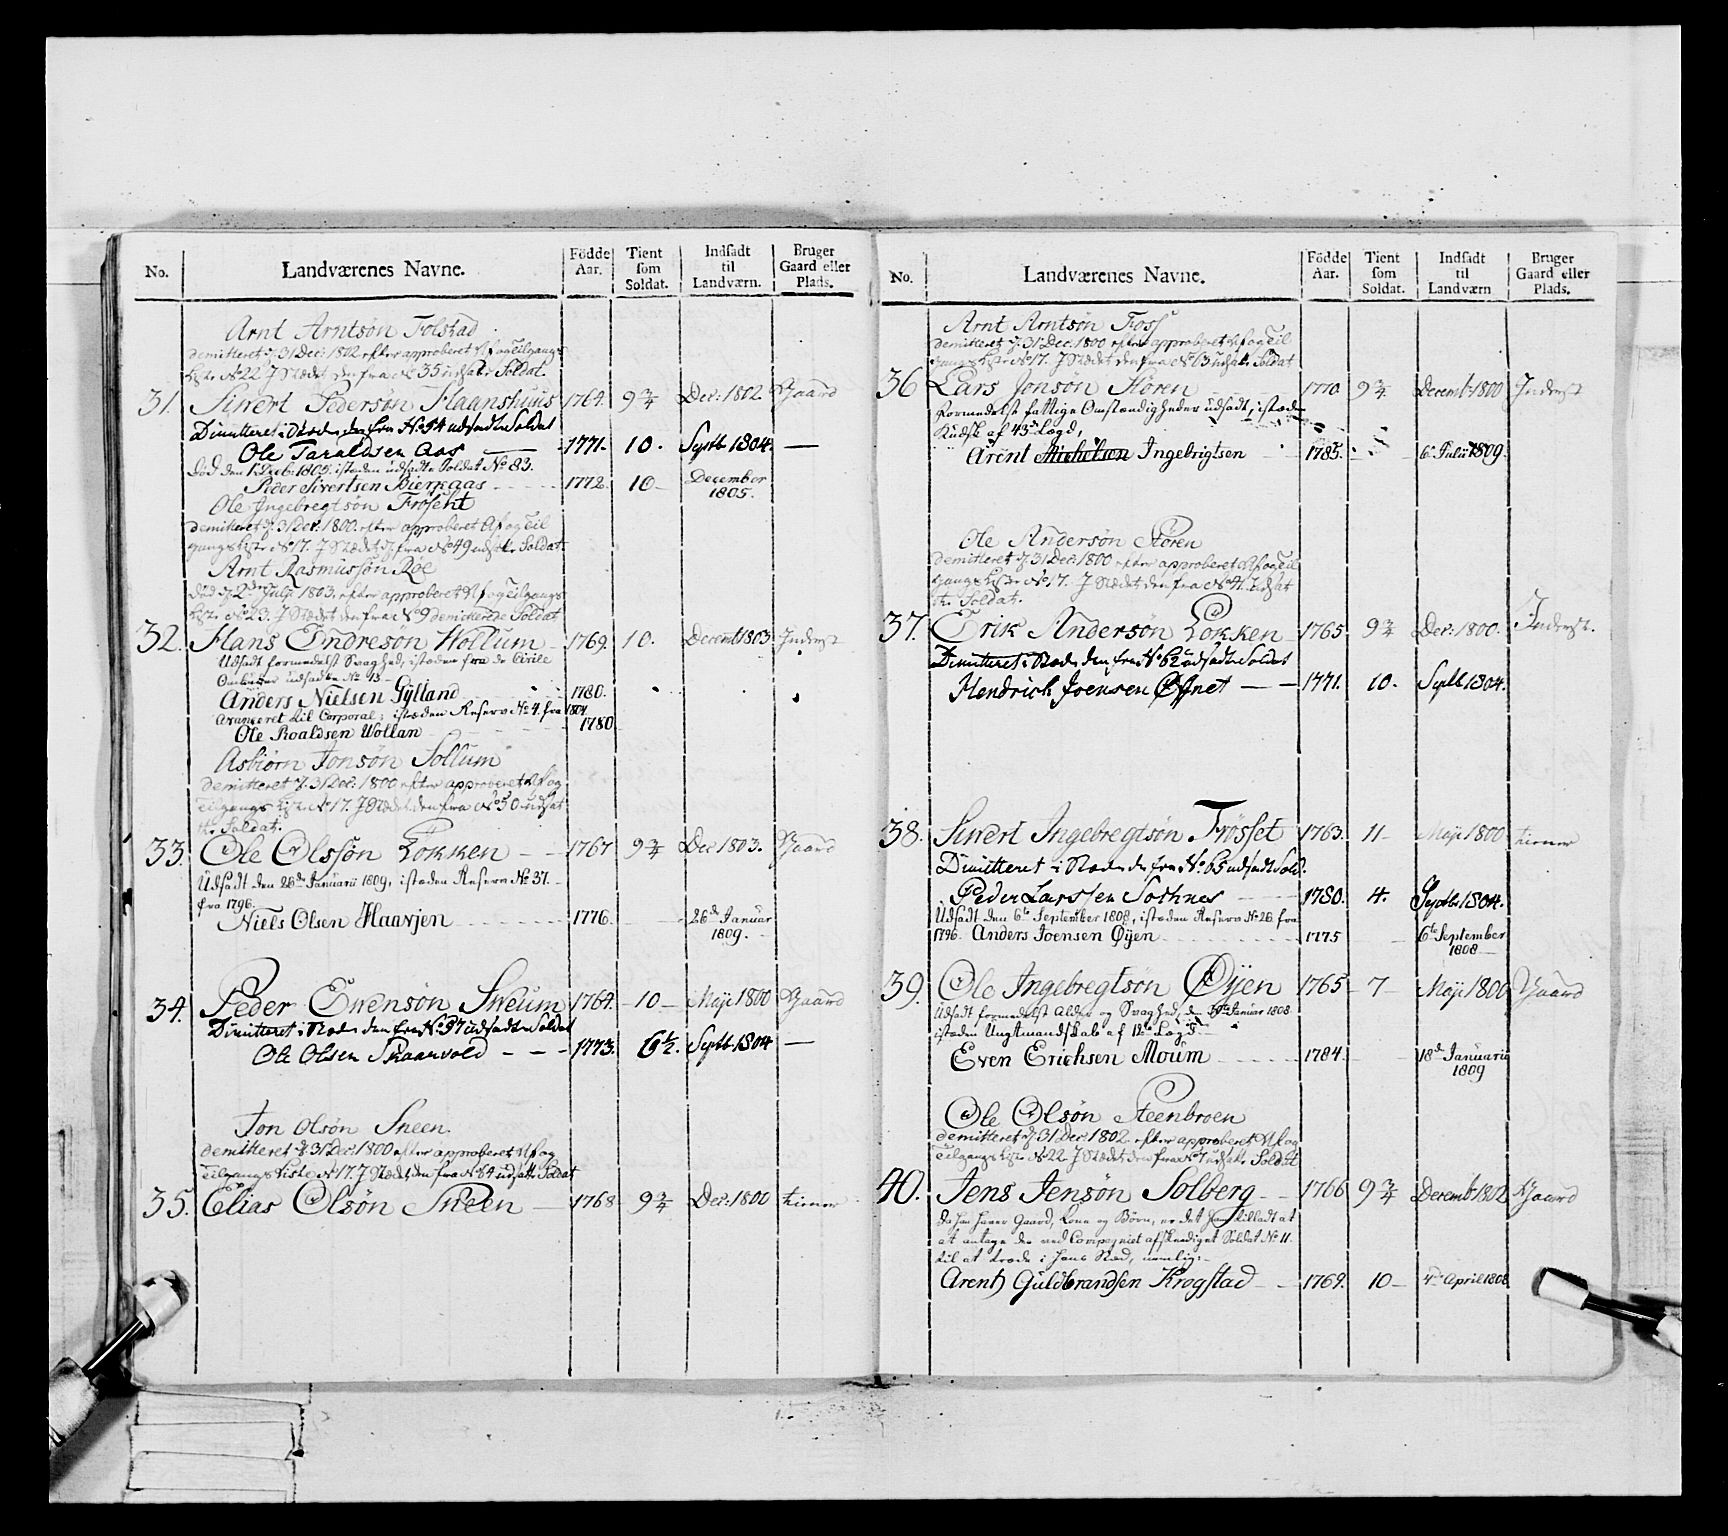 No. Landværenes Navne. Födde Aar. Tient som Soldat. Indsadt til Landværn. Bruger Gaard eller Plads.
Arnt Arntsøn Folstad
demitteret d. 31 Dec: 1802 efter approberet Af og Tilgangs
Liste No 22 J Stædet den fra No 35 udsatte Soldat
31. Siwert Pedersøn Haanshuus 1764. 9 3/4 Dec: 1802. Gaard
Dimitteret i Stæden den fra No 54 udsadte Soldat
Ole Taraldsen Aas 1771. 10. Septb 1804. —
død den 1 1805 istæden udsadte Soldat No 83.
Peder Sivertsen Bierkaas 1772. 10 — December
1805.
Ole Ingebregtsøn Frøseht
demitteret d. 31 Dec: 1800 efter approberet Af og Til
gangs Liste No 17. J Stædet d. fra No 49 udsatte Soldat.
Arnt Rasmussøn Roe
død d. 2den Julj 1803. efter approberet Af og Tilgangs
Liste No 23. J Stædet den fra No 9 demitterede Soldat
32. Hans Endresøn Wollum — 1769. 10. Decemb 1803 Inderst
Udsadt formedelst Svaghed, istæden fra de Civile
udsadte No 13 —
Anders Nielsen Gylland 1780.
Avanceret til Corporal; istæden Reserv No 4. fra 1804
Ole Roaldsen Wollan 1780
Asbiørn Jonsøn Sollum
demitteret d. 31 Dec: 1800 efter approberet Af og
Tilgangs Liste No 17. J Stædet den fra No 50 udsat
te Soldat.
33. Ole Olssøn Løkken — 1767 9 3/4 Dec 1803. Gaard
Udsadt den 26de Januarii 1809, istæden Reserv No 37.
fra 1796.
Niels Olsen Haavjen 1776. 26de Januar
1809.
34. Peder Ewensøn Sneum 1764. — 10 — Maji 1800 Gaard
Dimitteret i Stæden den fra No 57 udsadte Soldat
Ole Olsen Skaanvold — — — 1773. 6 1/2. Septb. 1804 —
Jon Olsøn Sneen.
demitteret d. 31 Dec: 1800 efter approberet Af og
Tilgangs Liste No 17. J Stædet den fra No 64 udsatte Soldat
35. Elias Olsøn Sneen — 1768 9 3/4 Dec: 1800 tiener
No. Landværenes Navne. Födde Aar. Tient som Soldat. Indsadt til Landværn Bruger Gaard eller Plads.
Arnt Arntsøn Foss
demitteret d. 31 Dec: 1800 efter approberet Af og Til
gangs Liste No 17. J Stædet den fra No 63 udsatte Soldat
36 Lars Jonsøn Støren 1770. 9 3/4 Decemb: 1800 Inderst
Formedelst fattige Omstændigheder udsadt, istæden
Kudsk af 43de Lægd,
Arent Michelsen Ingebrigtsen 1785. 6te Julii 1809.
Ole Andersøn Støren
demitteret d. 31 Dec: 1800 efter approberet Af og Til
gangs Liste No 17. J Stædet den fra No 41. udsat
te Soldat.
37. Erik Andersøn Løkken 1765. 9 3/4 Dec: 1800. Inderst.
Dimitteret i Stæde den fra No 62 udsadte Soldat
Hendrich Joensen Øfnet — — 1771. 10. Septb 1804.
38. Siwert Ingebregtsøn Frøsset 1763. 11 — Maji 1800 tiener
Dimitteret i Stæde den fra No 65 udsadte Sold.
Peder Larssen Sothnes 1780. 4. Septbr 1804.
Udsadt den 6te September 1808, istæden Reserv No 28 fra
1796. Anders Joensen Øyen 1775 6te September
1808 —
39. Ole Ingebregtsøn Øyen 1765 — 7 — Maji 1800 Gaard
Udsadt formedelst Alder og Svaghed, den Januar 1808
istæden Ungtmandskab af 12te Lægd
Even Erichsen Moum 1784. 18de Januarii
1809
Ole Olsøn Steenbroen
demitteret d. 31 Dec: 1802 efter approberet Af og
Tilgangs Liste No 22 J Stædet den fra No 7 udsatte Soldat
40. Jens Jensøn Solberg — 1766 9 3/4 Decemb 1802 Gaard
Da han haver Gaard, Kone og Børn, er det ham tilladt at
at antage den ved Compagniet afskediget Soldat No 11.
til at træde i hans Stæd, nemlig:
Arent Guldbrandsen Krogstad — 1769. 10 — 4de April 1808